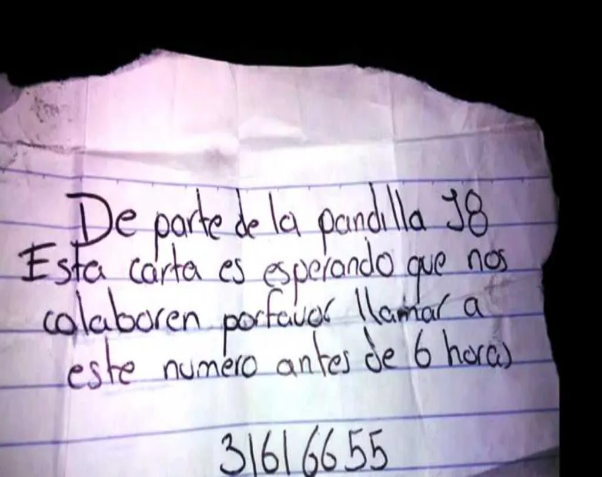 De parte de la pandilla 18
Esta carta es esperando que nos
colaboren porfavor llamar a
este numero antes de 6 horas
31616655